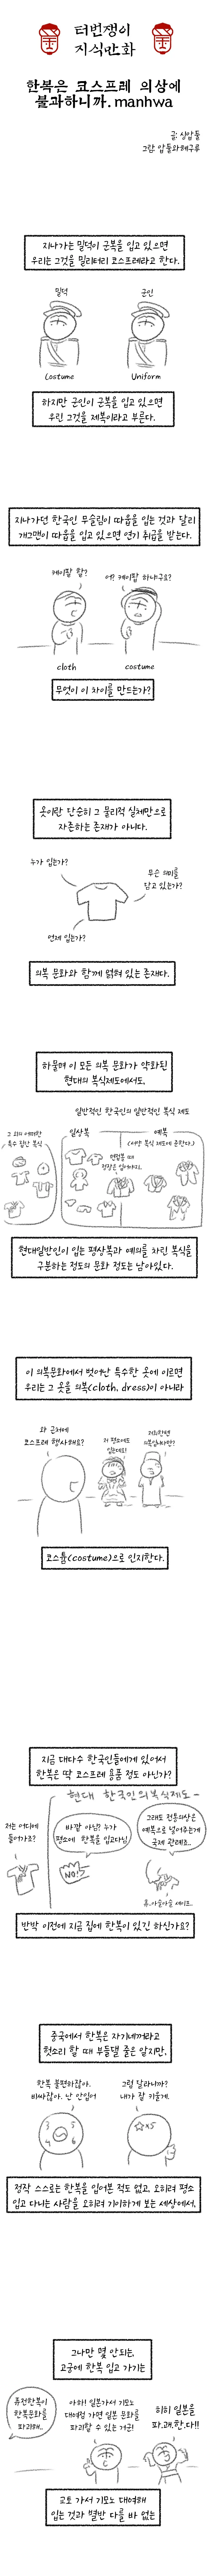 터번쟁이
지식만화
한복은 코스프레 의상에
불과하니까. manhwa
글: 싱얌들
지나가는 밀덕이 군복을 입고 있으면
우리는 그것을 밀리터리 코스프레라고 한다.
밀덕
군인
Costume
Uniform
하지만 군인이 군복을 입고 있으면
우린 그것을 제복이라고 부른다.
지나가던 한국인 무슬림이 따웁을 입는 것과 달리
개그맨이 따웁을 입고 있으면 연기 취급을 받는다.
케이팝 할?
에? 케이팝 하냐구요?
cloth
costume
무엇이 이 차이를 만드는가?
옷이란 단순히 그 물리적 실체만으로
자존하는 존재가 아니다.
누가 입는가?
무슨 의미를
담고 있는가?
언제 입는가?
의복 문화와 함께 얽혀 있는 존재다.
하물며 이 모든 의복 문화가 약화된
현대의 복식제도에서도,
일반적인 한국인의 일반적인 복식 제도
그 외의 어떠한
특수 집단 복식
일상복
예복
면접볼 때
정장은 입어야지..
현대일반인이 입는 평상복과 예의를 차린 복식을
구분하는 정도의 문화 정도는 남아있다.
이 의복문화에서 벗어난 특수한 옷에 이르면
우리는 그 옷을 의복(cloth, dress)이 아니라
와 근처에
코스프레 행사해요?
저 평소에도
입는데요!
코스튬(costume)으로 인지한다.
지금 대다수 한국인들에게 있어서
한복은 딱 코스프레 용품 정도 아닌가?
현대 한국인의복식제도-
저는 어디에
들어가죠?
바깥 아님? 누가
평소에 한복을 입고다님
NO!
그래도 전통의상은
예복으로 넣어주는게
국제 관례죠..
휴..아슬아슬 세이프..
반박 이전에 지금 집에 한복이 있긴 하신가요?
중국에서 한복은 자기네꺼라고
헛소리 할 때 부들댈 줄은 알지만,
한복 불편하잖아.
비싸잖아. 난 안입어
그럼 달라니까?
내가 잘 키울게.
정작 스스로는 한복을 입어본 적도 없고, 오히려 평소
입고 다니는 사람을 오히려 기이하게 보는 세상에서,
그나마 몇 안되는,
고궁에 한복 입고 가기는
퓨전한복이
한복문화를
파괴해..
아하! 일본가서 기모노
대여업 가면 일본 문화를
파괴할 수 있는 거군!
히히 일본을
파.괘.한.다!!
교토 가서 기모노 대여해
입는 것과 별반 다를 바 없는